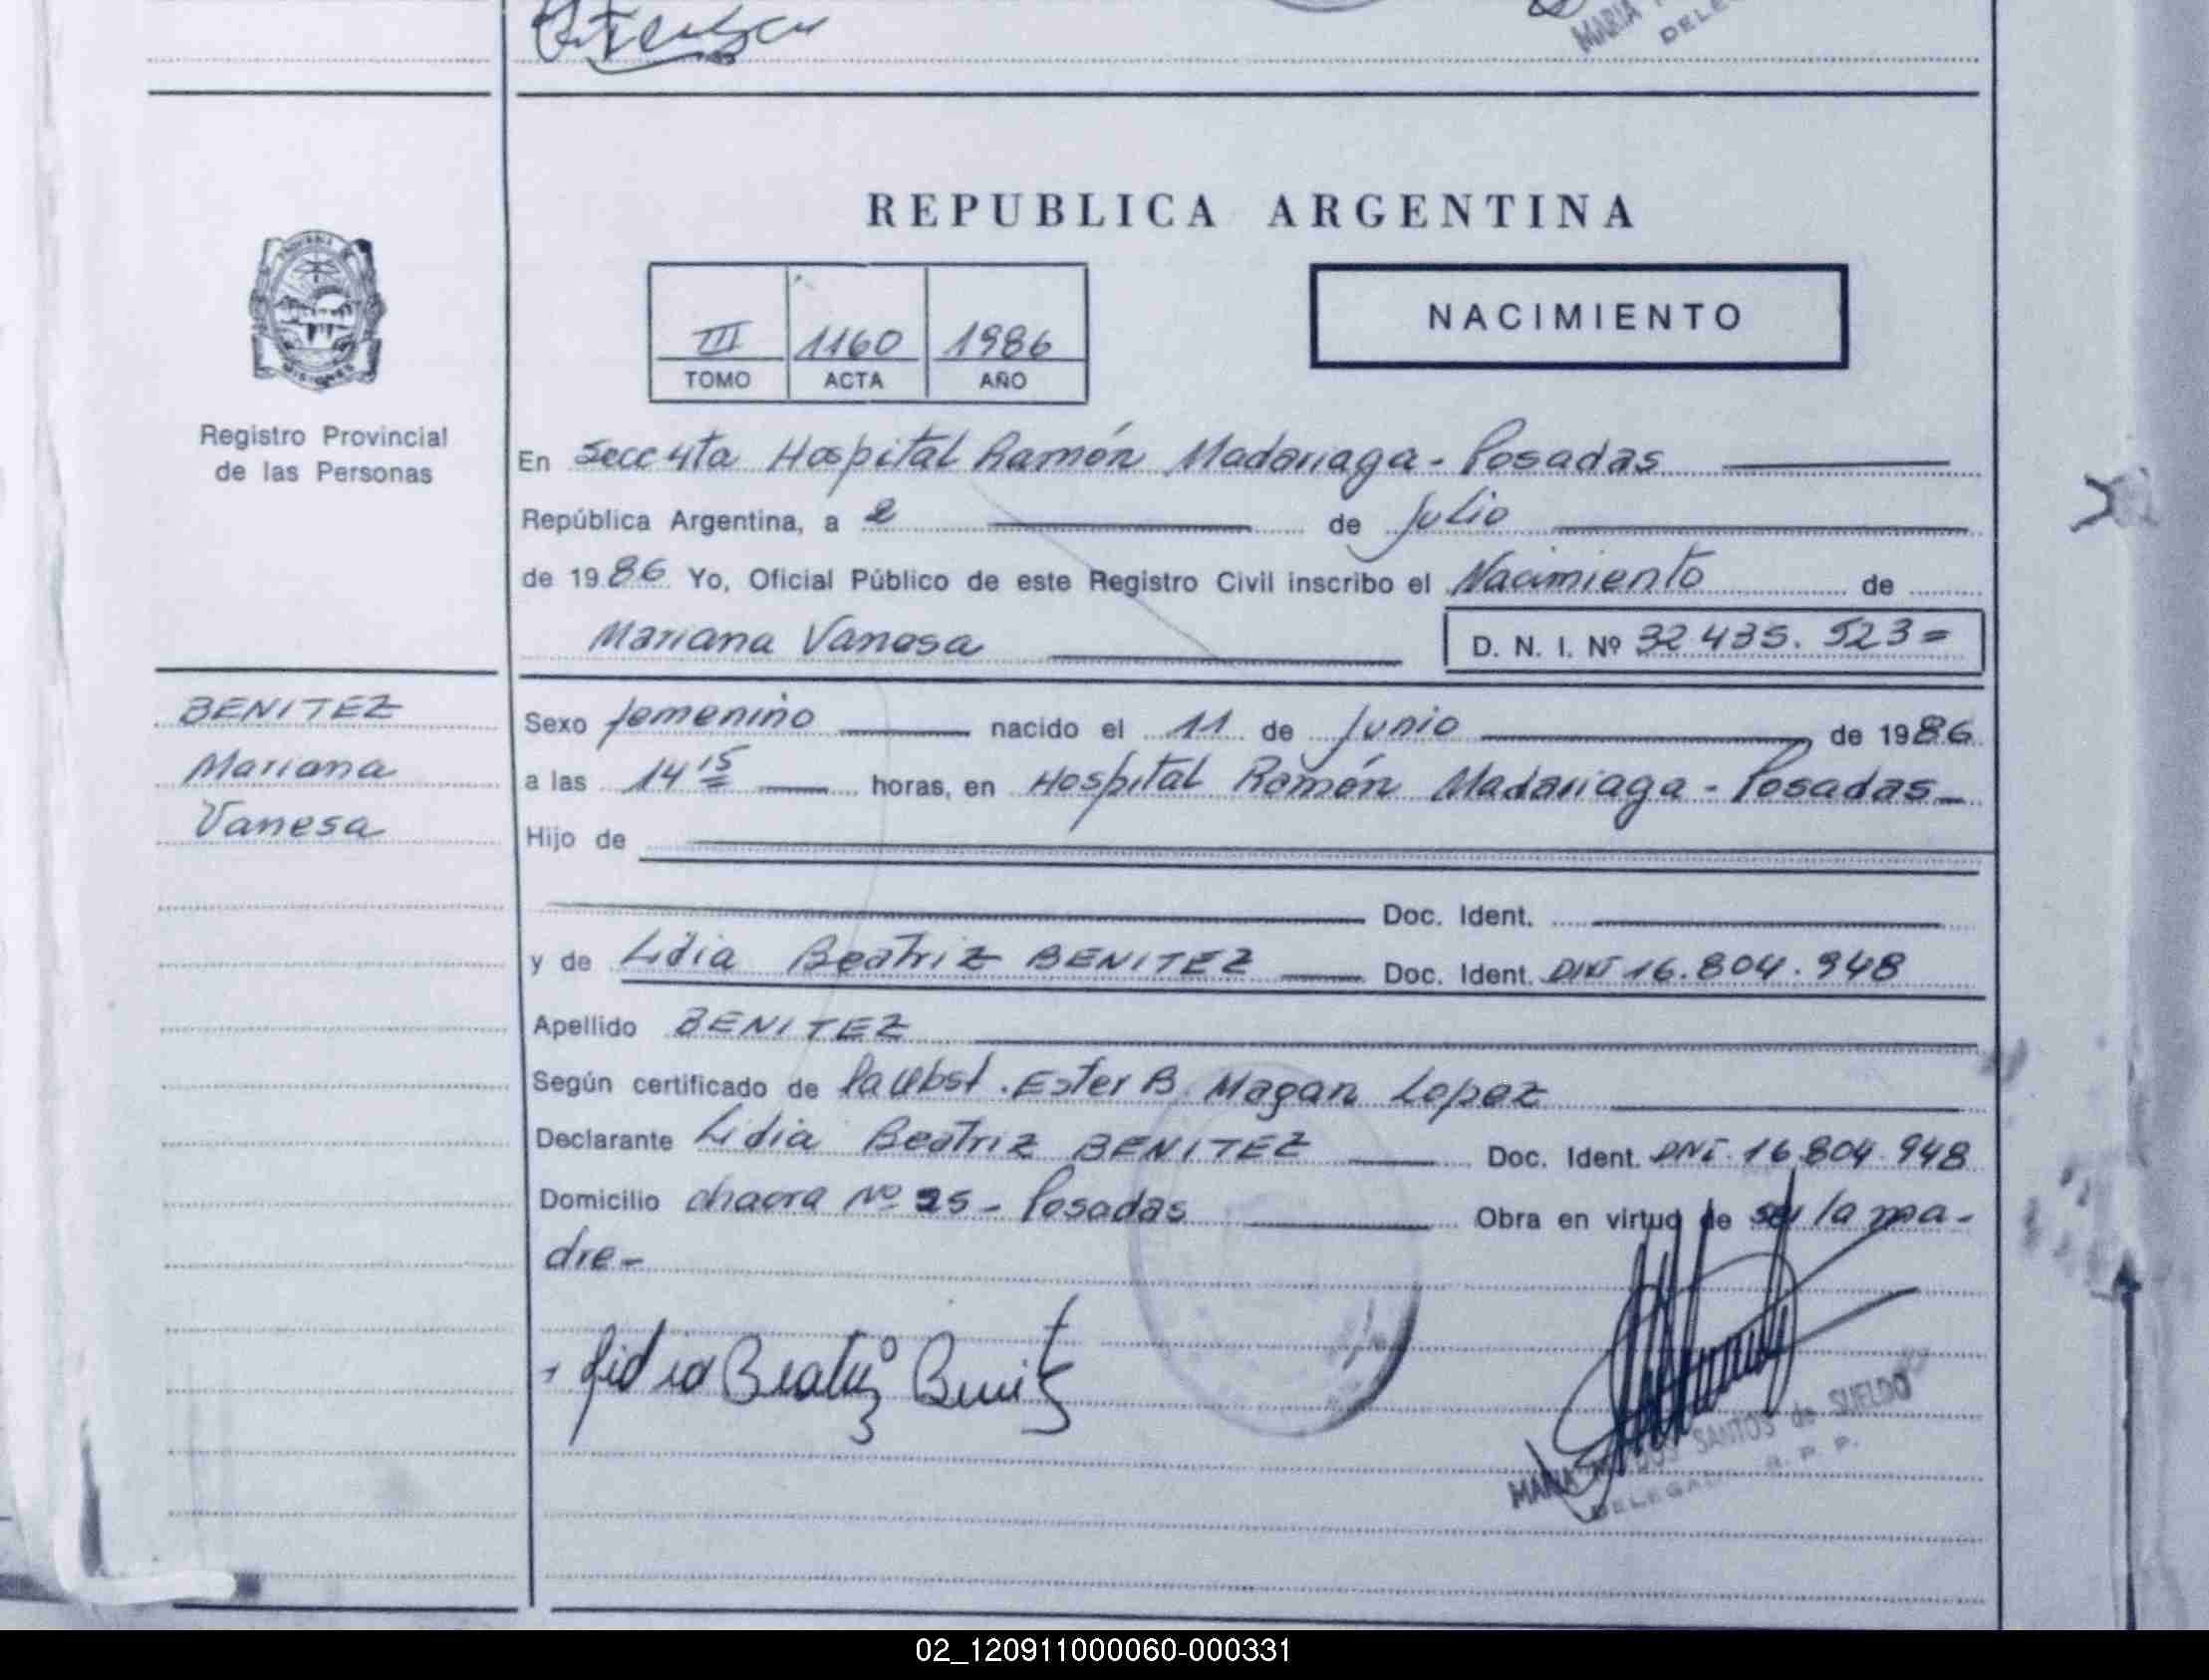 MARIA
DELE
REPUBLICA ARGENTINA
III 1160 1986
TOMO ACTA AÑO
NACIMIENTO
Registro Provincial
de las Personas
En Secc 4ta Hospital Ramón Madariaga - Posadas
República Argentina, a 2 de Julio
de 1986 Yo, Oficial Público de este Registro Civil inscribo el Nacimiento de
Mariana Vanesa D. N. I. Nº 32.435.523=
BENITEZ
Mariana
Vanesa
Sexo femenino nacido el 11 de Junio de 1986
a las 14 15 horas, en Hospital Ramón Madariaga - Posadas-
Hijo de
Doc. Ident.
y de Lidia Beatriz BENITEZ Doc. Ident. DNI 16.804.948
Apellido BENITEZ
Según certificado de Ester B. Magan Lopez
Declarante Lidia Beatriz BENITEZ Doc. Ident. DNI. 16.804.948
Domicilio chacra Nº 25 - Posadas Obra en virtud de ser la ma-
dre-
Lidia Beatriz Benitez
MARIA DOS SANTOS de SUELDO
DELEGADA R. P. P.
02_120911000060-000331